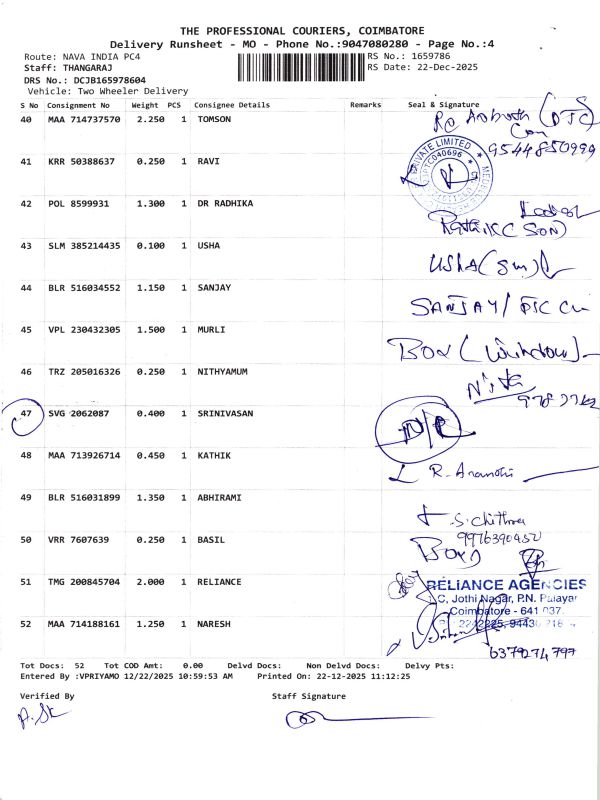 THE PROFESSIONAL COURIERS, COIMBATORE
Delivery Runsheet - MO - Phone No.:9047080280 - Page No.:4
Route: NAVA INDIA PC4 RS No.: 1659786
Staff: THANGARAJ RS Date: 22-Dec-2025
DRS No.: DCJB165978604
Vehicle: Two Wheeler Delivery
S No Consignment No Weight PCS Consignee Details Remarks Seal & Signature
40 MAA 714737570 2.250 1 TOMSON
9544850999
41 KRR 50388637 0.250 1 RAVI
PRIVATE LIMITED
42 POL 8599931 1.300 1 DR RADHIKA
(SON)
43 SLM 385214435 0.100 1 USHA
USha
44 BLR 516034552 1.150 1 SANJAY
SANJAY/
45 VPL 230432305 1.500 1 MURLI
Box (Window)
46 TRZ 205016326 0.250 1 NITHYAMUM
47 SVG 2062087 0.400 1 SRINIVASAN
D/L
48 MAA 713926714 0.450 1 KATHIK
49 BLR 516031899 1.350 1 ABHIRAMI
S. Chithra
50 VRR 7607639 0.250 1 BASIL
Box
51 TMG 200845704 2.000 1 RELIANCE
RELIANCE AGENCIES
C, Jothi Nagar, P.N. Palayam
Coimbatore - 641 037.
52 MAA 714188161 1.250 1 NARESH
6379274797
Tot Docs: 52 Tot COD Amt: 0.00 Delvd Docs: Non Delvd Docs: Delvy Pts:
Entered By :VPRIYAMO 12/22/2025 10:59:53 AM Printed On: 22-12-2025 11:12:25
Verified By Staff Signature